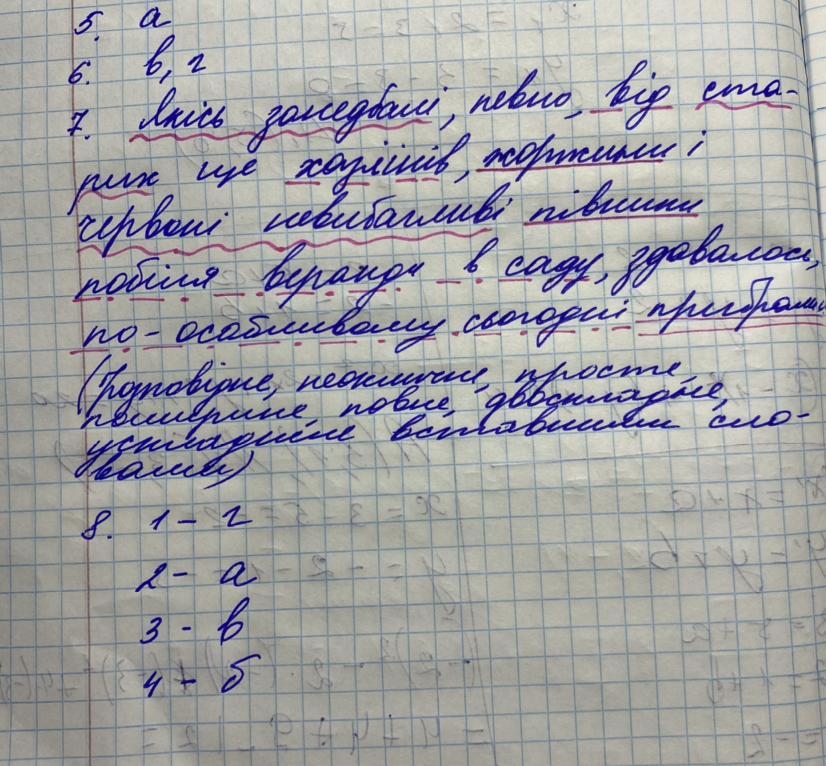 5. а
6. в, г
7. Якісь занедбалі, певно, від ста-
рих ще хазяїнів, жоржини і
червоні невибагливі півники
побіля веранди в саду, здавалось,
по-особливому сьогодні прибрались
(Розповідне, неокличне, просте,
поширине, повне, двоскладне,
ускладнене вставними сло-
вами)
8. 1 - г
2 - а
3 - в
4 - б